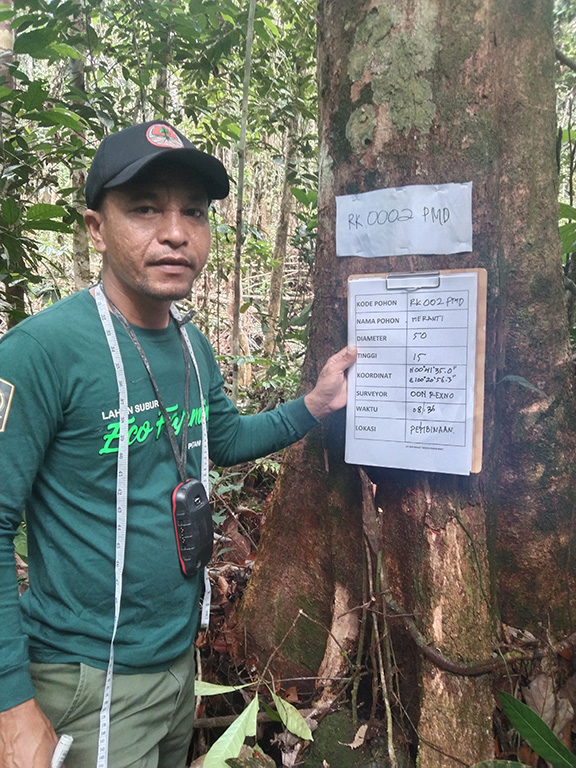 RK 0002 PMD
KODE POHON RK 002 PMD
NAMA POHON MERANTI
DIAMETER 50
TINGGI 15
KOORDINAT N 00° 41' 35.0"
E 100° 20' 56.3"
SURVEYOR ODN REXNO
WAKTU 08:36
LOKASI PEMBINAAN
LAHAN SUBUR
Eco Farming
PETANI